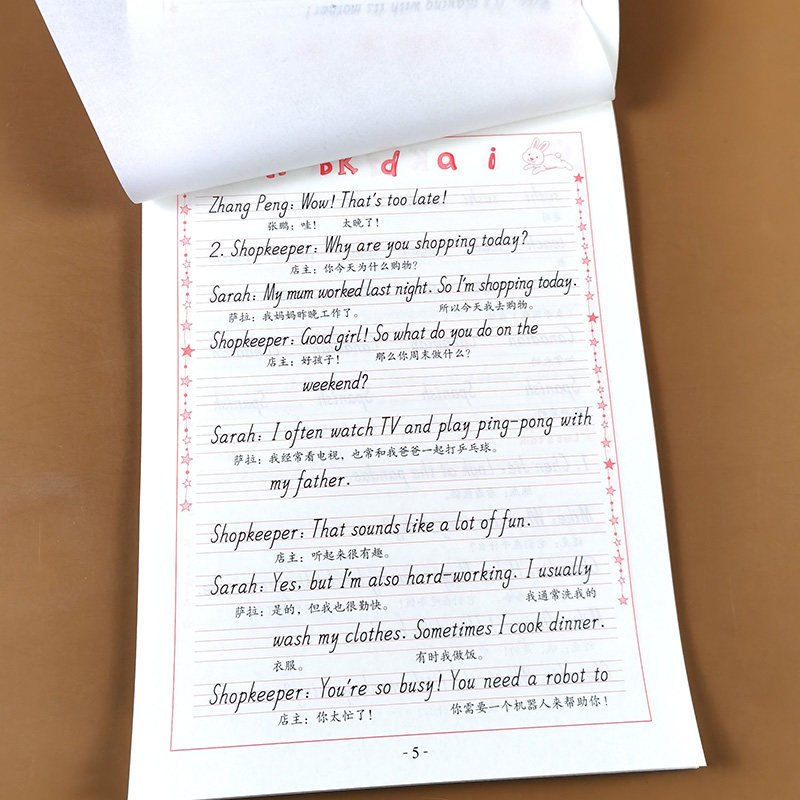 K d a i
Zhang Peng: Wow! That's too late!
张鹏：哇！ 太晚了！
2. Shopkeeper: Why are you shopping today?
店主：你今天为什么购物？
Sarah: My mum worked last night. So I'm shopping today.
萨拉：我妈妈昨晚工作了。 所以今天我去购物。
Shopkeeper: Good girl! So what do you do on the
店主：好孩子！ 那么你周末做什么？
weekend?
Sarah: I often watch TV and play ping-pong with
萨拉：我经常看电视，也常和我爸爸一起打乒乓球。
my father.
Shopkeeper: That sounds like a lot of fun.
店主：听起来很有趣。
Sarah: Yes, but I'm also hard-working. I usually
萨拉：是的，但我也很勤快。 我通常洗我的
wash my clothes. Sometimes I cook dinner.
衣服。 有时我做饭。
Shopkeeper: You're so busy! You need a robot to
店主：你太忙了！ 你需要一个机器人来帮助你！
- 5 -